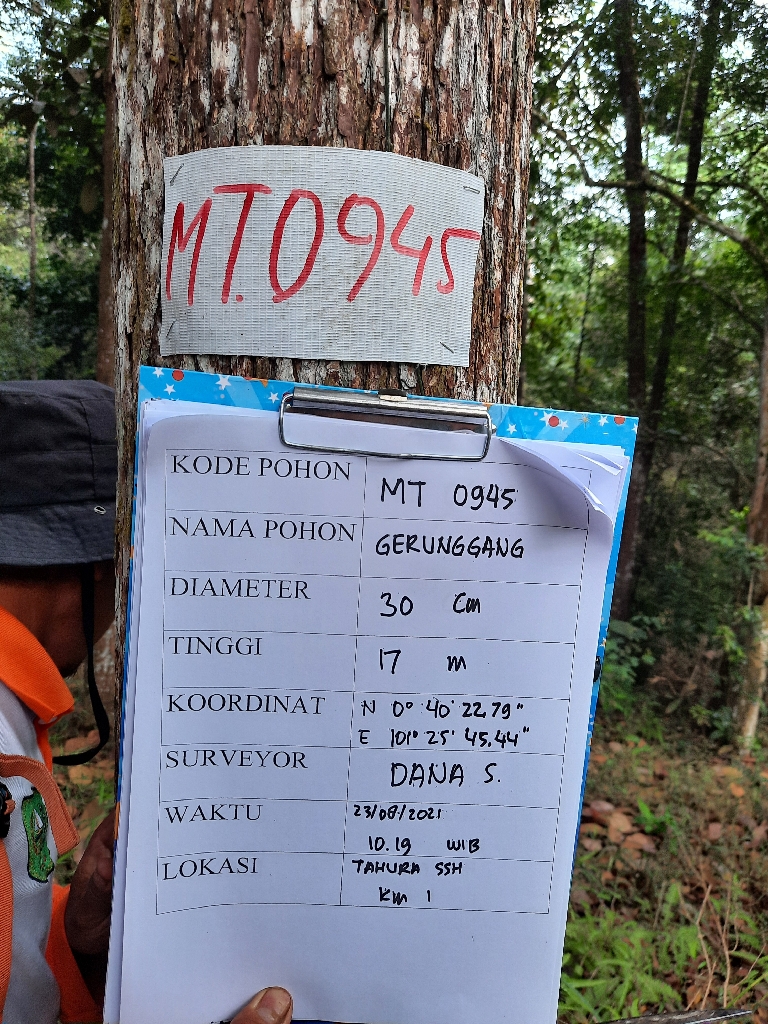 MT.0945
KODE POHON MT 0945
NAMA POHON GERUNGGANG
DIAMETER 30 Cm
TINGGI 17 m
KOORDINAT N 0° 40' 22.79"
E 101° 25' 45.44"
SURVEYOR DANA S.
WAKTU 23/08/2021
10.19 WIB
LOKASI TAHURA SSH
Km 1